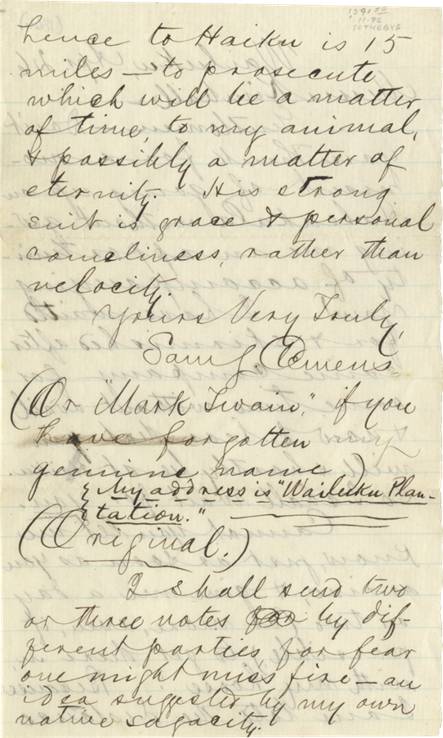 11-92
SOTHEBYS
hence to Haiku is 15
miles — to prosecute
which will be a matter
of time, to my animal,
& possibly a matter of
eternity. His strong
suit is grace & personal
comeliness, rather than
velocity.
Yours Very Truly,
Sam L. Clemens.
(Or "Mark Twain," if you
have forgotten
genuine name.)
{My address is "Wailuku Plan-
tation."
(Original.)
I shall send two
or three notes by dif-
ferent parties, for fear
one might miss fire — an
idea suggested by my own
native sagacity.